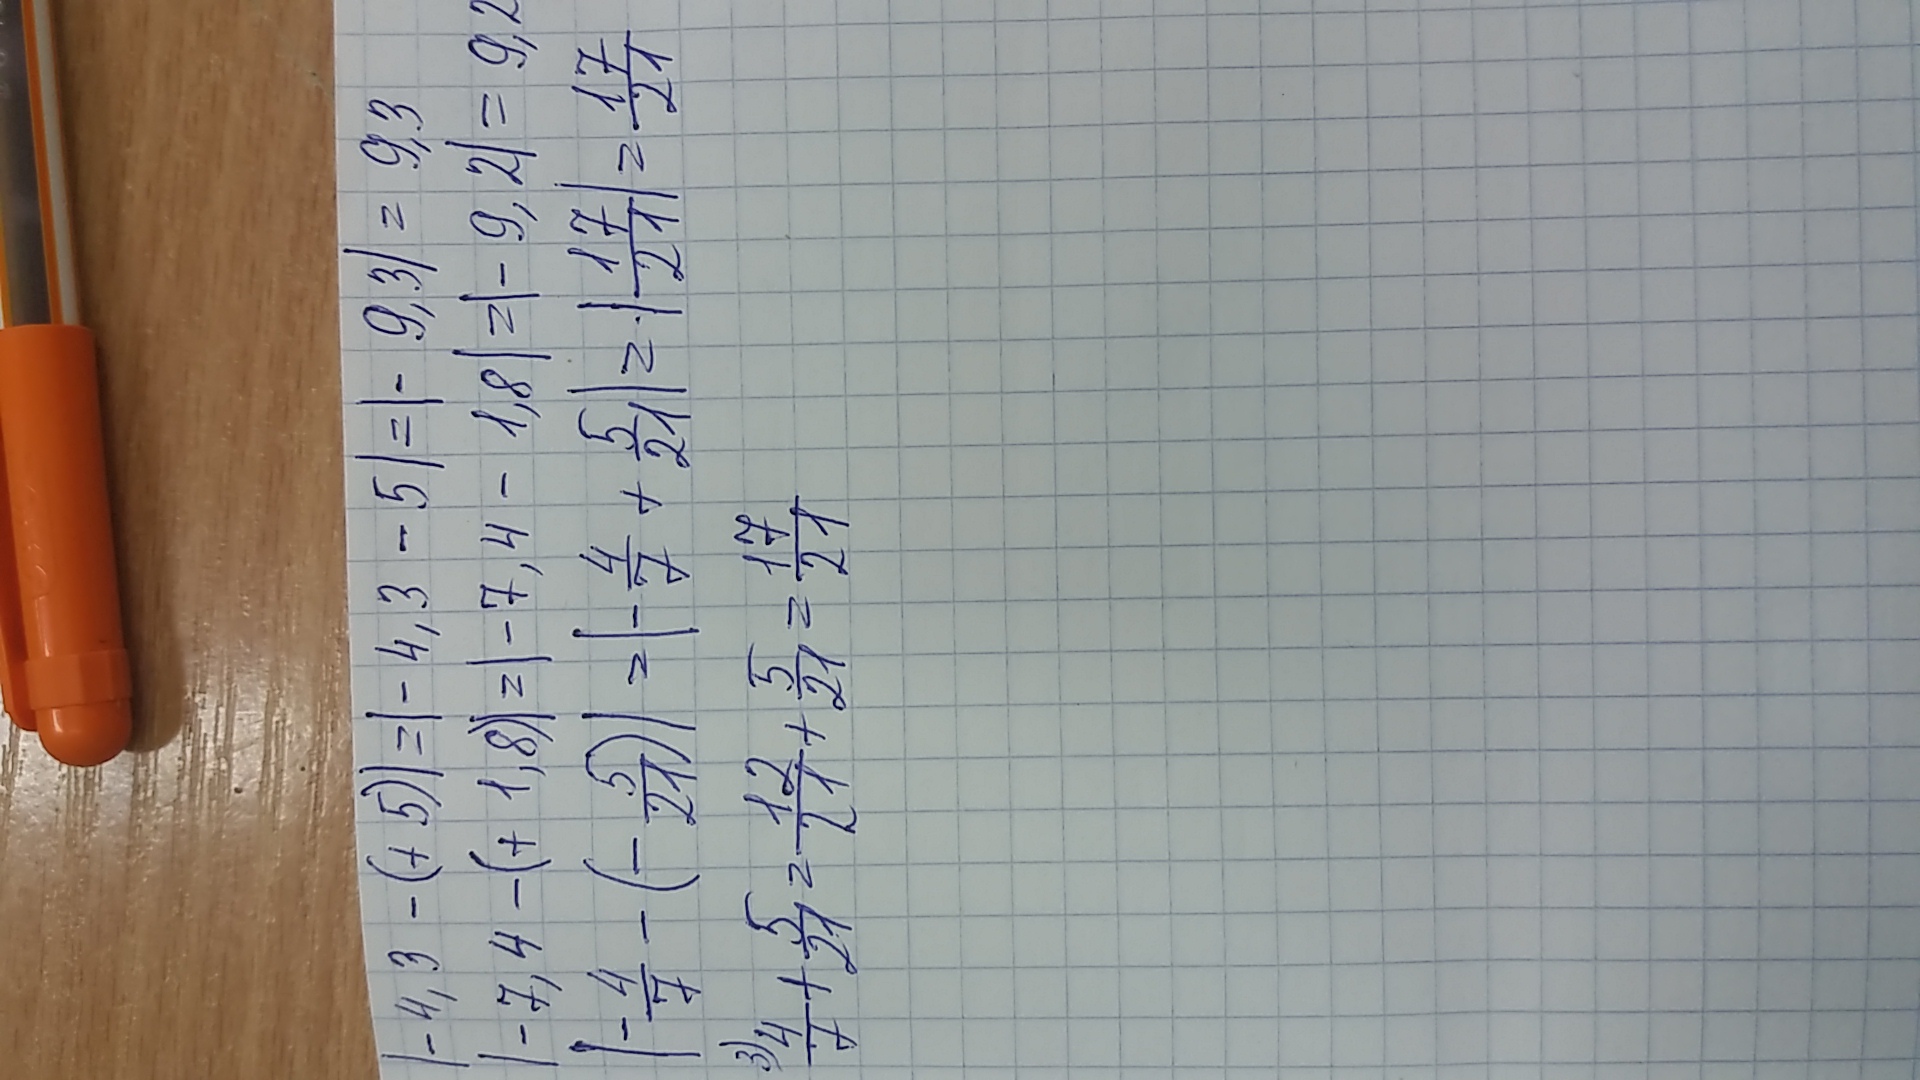 |-4,3 -(+5)|=|-4,3 -5|=|-9,3|=9,3
|-7,4 -(+1,8)|=|-7,4 -1,8|=|-9,2|=9,2
|-4/7 - (-5/21)| = |-4/7 + 5/21| = |17/21| = 17/21
3) 4/7 + 5/21 = 12/21 + 5/21 = 17/21